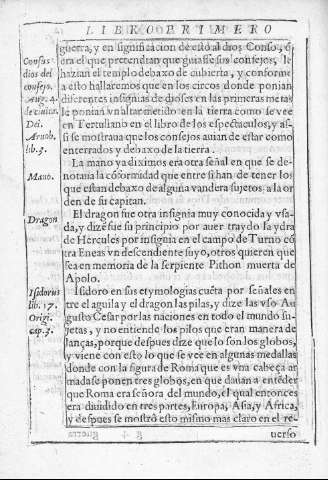 LIBRO PRIMERO
guerra, y en significacion de esto al dios Conso, o
era el que pretendian que guiasse sus consejos, le
hazian el templo debaxo de cubierta, y conforme
a esto hallaremos que en los circos donde ponian
diferentes insignias de dioses en las primeras metas
le ponian vn altar metido en la tierra como se vee
en Tertuliano en el libro de los espectaculos, y as-
si se mostraua que los consejos auian de estar como
enterrados y debaxo de la tierra.
La mano ya diximos era otra señal en que se de-
notaua la cōformidad que entre si han de tener los
que estan debaxo de alguna vandera sujetos a la or
den de su capitan.
El dragon fue otra insignia muy conocida y vsa-
da, y dizē fue su principio por auer traydo la ydra
de Hercules por insignia en el campo de Turno cō
tra Eneas vn descendiente suyo, otros quieren que
sea en memoria de la serpiente Pithon muerta de
Apolo.
Isidoro en sus etymologias cuēta por señales en
tre el aguila y el dragon las pilas, y dize las vso Au
gusto Cesar por las naciones en todo el mundo su-
jetas, y no entiende los pilos que eran manera de
lanças, porque despues dize que lo son los globos,
y viene con esto lo que se vee en algunas medallas
donde con la figura de Roma que es vna cabeça ar
mada se ponen tres globos, en que dauan a entēder
que Roma era señora del mundo, el qual entonces
era diuidido en tres partes, Europa, Asia, y Africa,
y despues se mostro esto mismo mas claro en el re-
uerso
Consus
dios del
consejo.
Aug. 4.
de ciuita.
Dei.
Arnob.
lib. 3.
Mano.
Dragon
Isidorus
lib. 17.
Origi.
cap. 3.